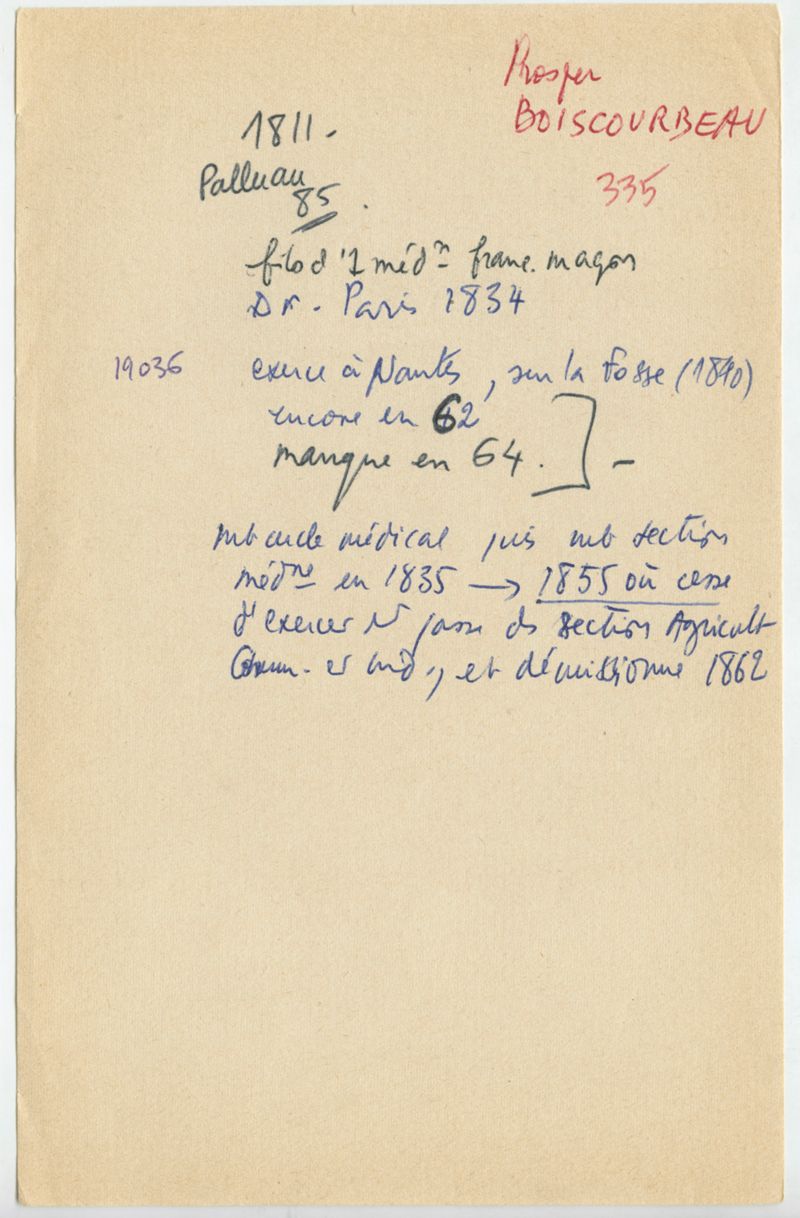 Prosper
BOISCOURBEAU
335
1811.
Palluau
85.
fils d'1 médn franc. maçon
Dr. Paris 1834
19036 exerce à Nantes, sur la Fosse (1840)
encore en 62
manque en 64. ] –
mb cercle médical puis mb section
médne en 1835 → 1855 où cesse
d'exercer et passe ds section Agricult
Comm. et ind., et démissionne 1862